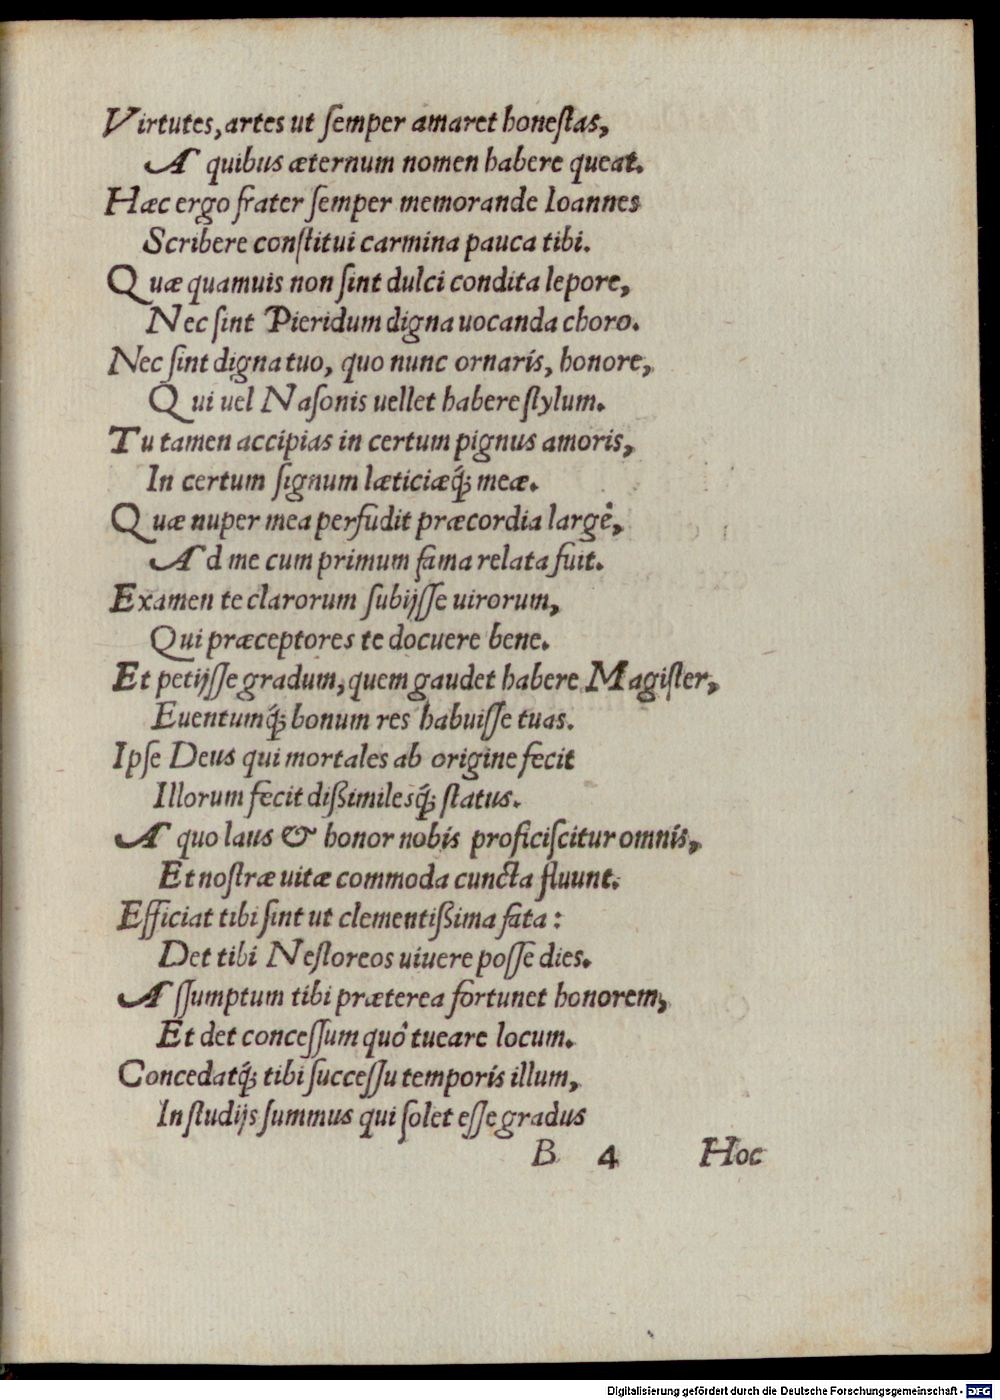 Virtutes, artes ut ſemper amaret honeſtas,
A quibus æternum nomen habere queat.
Hæc ergo frater ſemper memorande Ioannes
Scribere conſtitui carmina pauca tibi.
Quæ quamuis non ſint dulci condita lepore,
Nec ſint Pieridum digna uocanda choro.
Nec ſint digna tuo, quo nunc ornarís, honore,
Qui uel Naſonis uellet habere ſtylum.
Tu tamen accipias in certum pignus amoris,
In certum ſignum læticiæq́; meæ.
Quæ nuper mea perfudit præcordia largè,
Ad me cum primum fama relata fuit.
Examen te clarorum ſubijſſe uirorum,
Qui præceptores te docuere bene.
Et petijſſe gradum, quem gaudet habere Magiſter,
Euentumq́; bonum res habuiſſe tuas.
Ipſe Deus qui mortales ab origine fecit
Illorum fecit dißimilesq́; ſtatus.
A quo laus & honor nobis proficiſcitur omnís,
Et noſtræ uitæ commoda cuncta fluunt.
Efficiat tibi ſint ut clementißima fata:
Det tibi Neſtoreos uiuere poſſe dies.
Aſſumptum tibi præterea fortunet honorem,
Et det conceſſum quò tueare locum.
Concedatq́; tibi ſucceſſu temporís illum,
In ſtudijs ſummus qui ſolet eſſe gradus
B 4 Hoc
Digitalisierung gefördert durch die Deutsche Forschungsgemeinschaft - DFG